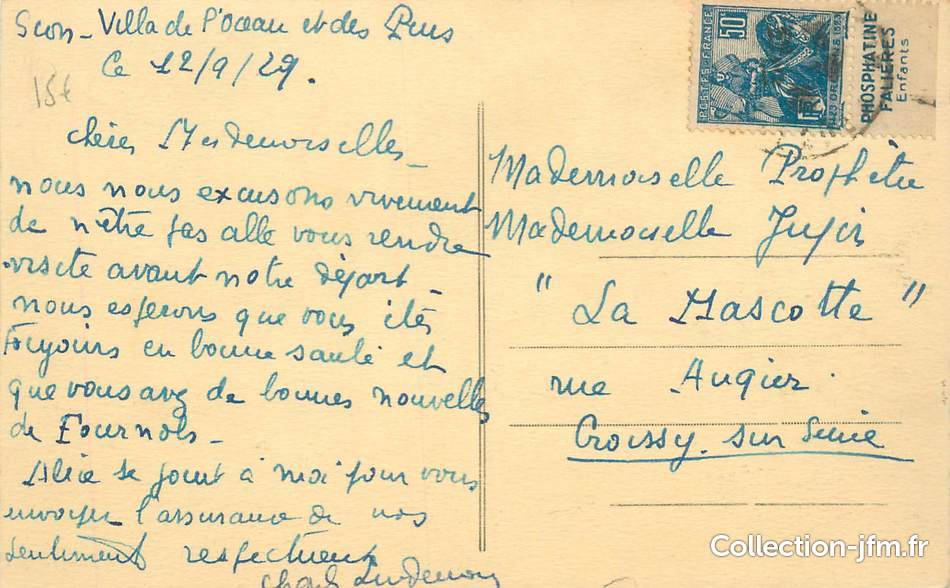 Sion - Villa de l'Océan et des Pins
Ce 12/9/29.
15€
Chères Mesdemoiselles -
nous nous excusons vivement
de n'être pas allé vous rendre
visite avant notre départ -
nous espérons que vous êtes
toujours en bonne santé et
que vous avez de bonnes nouvelles
de Fournols -
Alice se joint à moi pour vous
envoyer l'assurance de nos
sentiments respectueux
50c
POSTES-FRANCE
PHOSPHATINE
FALIÈRES
Enfants
Mademoiselle Prophète
Mademoiselle
" La Mascotte "
rue Augier.
Croissy sur Seine
Collection-jfm.fr